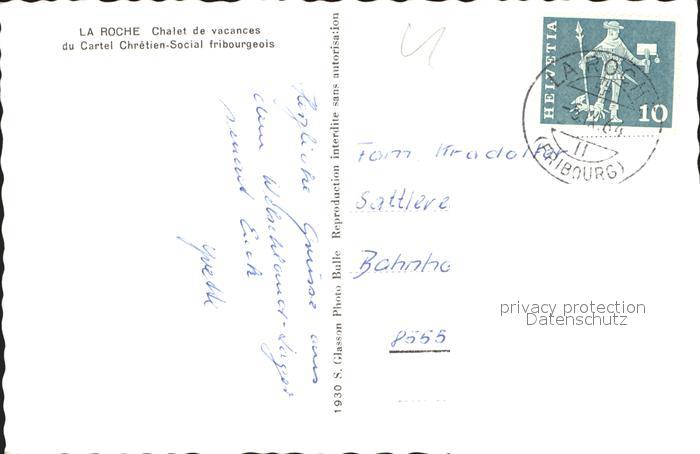 LA ROCHE Chalet de vacances
du Cartel Chrêtien-Social fribourgeois
Herzliche Grüsse aus
dem Welschland-Lager
sendet Euch
Yvetti
1930 S. Glasson Photo Bulle Reproduction interdite sans autorisation
HELVETIA
10
LA ROCHE
64
(FRIBOURG)
Fam. Kradolfer
Sattlere
Bahnho
8555
privacy protection
Datenschutz